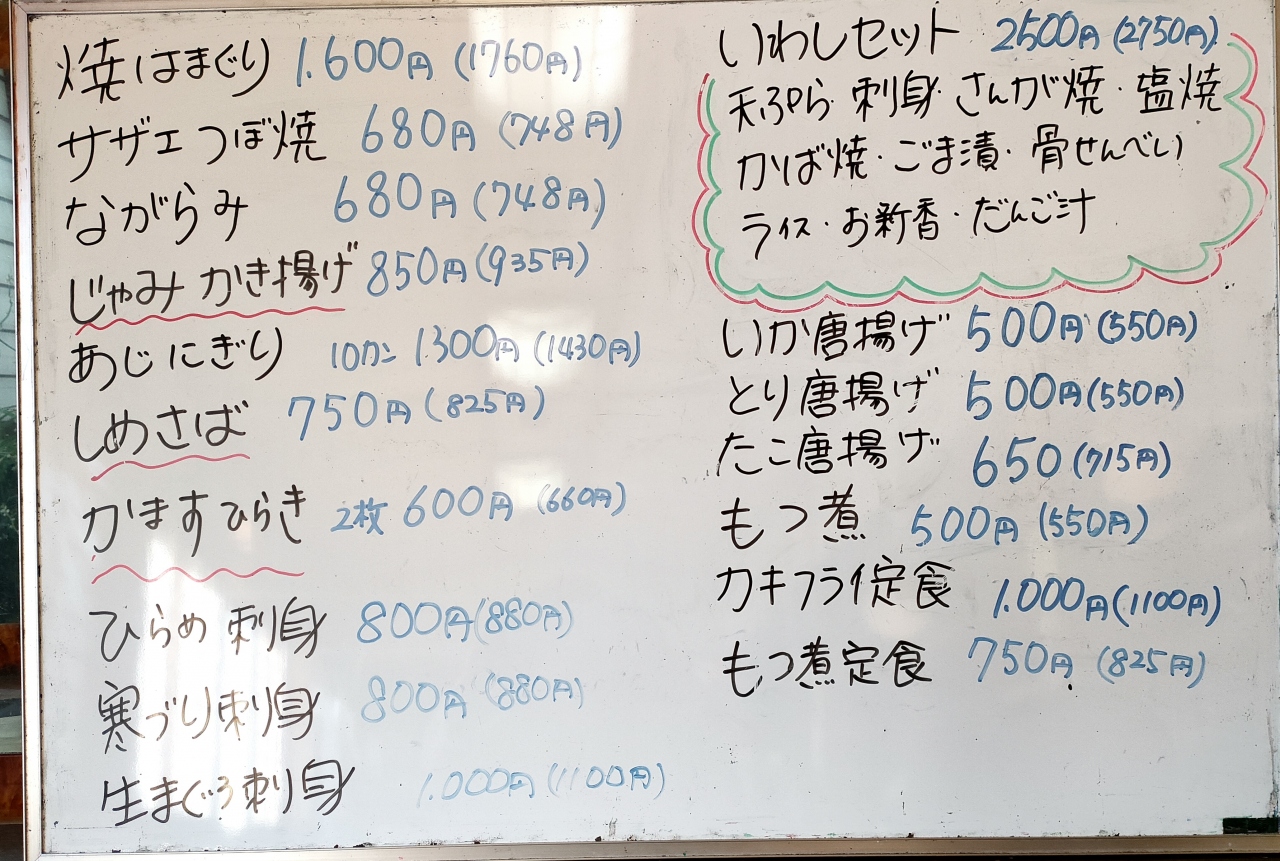 焼はまぐり 1.600円 (1760円)
サザエつぼ焼 680円 (748円)
ながらみ 680円 (748円)
じゃみかき揚げ 850円 (935円)
あじにぎり 10カン 1.300円 (1430円)
しめさば 750円 (825円)
かますひらき 2枚 600円 (660円)
ひらめ刺身 800円 (880円)
寒づり刺身 800円 (880円)
生まぐろ刺身 1.000円 (1100円)
いわしセット 2500円 (2750円)
天ぷら・刺身・さんが焼・塩焼
かば焼・ごま漬・骨せんべい
ライス・お新香・だんご汁
いか唐揚げ 500円 (550円)
とり唐揚げ 500円 (550円)
たこ唐揚げ 650 (715円)
もつ煮 500円 (550円)
カキフライ定食 1.000円 (1100円)
もつ煮定食 750円 (825円)